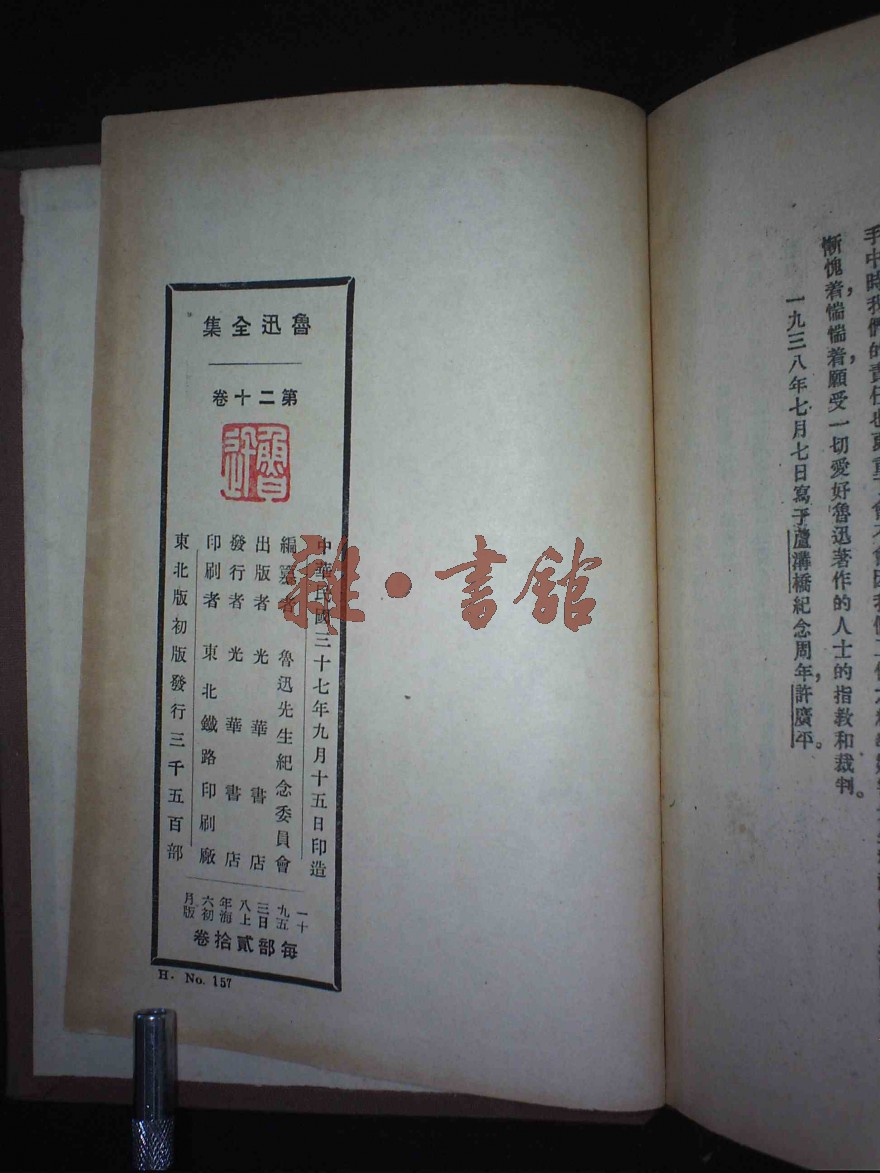 手中時我們的責任也更重
慚愧着，惴惴着，願受一切愛好魯迅著作的人士的指教和裁判。
一九三八年七月七日寫于蘆溝橋紀念周年，許廣平。
魯迅全集
第二十卷
魯迅
中華民國三十七年九月十五日印造
編纂者 魯迅先生紀念委員會
出版者 光華書店
發行者 光華書店
印刷者 東北鐵路印刷廠
東北版初版發行三千五百部
一九三八年六月
十五日上海初版
每部貳拾卷
H. No. 157
雜·書館